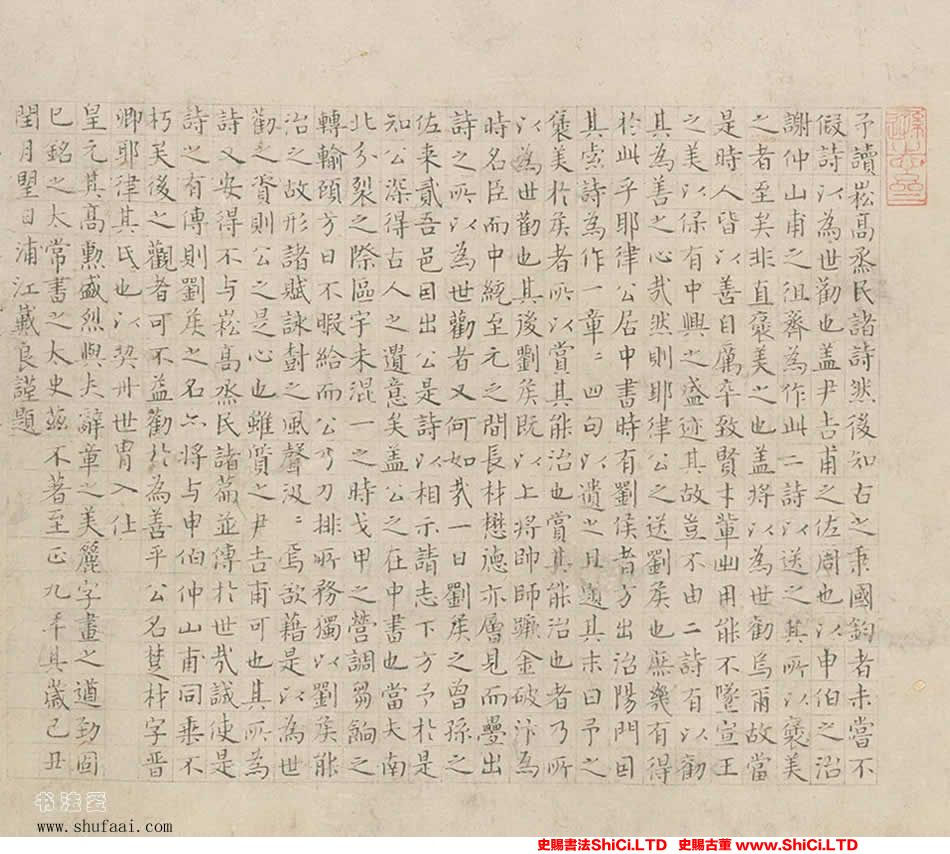 予讀崧高烝民諸詩然後知古之秉國鈞者未嘗不
假詩以為世勸也盖尹吉甫之佐周也以申伯之治
謝仲山甫之徂齊為作此二詩以送之其所以褒美
之者至矣非直褒美之也盖将以為世勸焉爾故當
是時人皆以善自厲卒致賢才輩出用能不墜宣王
之美以保有中興之盛迹其故豈不由二詩有以勸
其為善之心哉然則耶律公之送劉矦也庶幾有得
於此乎耶律公居中書時有劉侯者方出治陽門囙
其索詩為作一章〻四句以遺之且題其末曰予之
褒美於矦者所以賞其能治也賞其能治也者乃所
以為世勸也其後劉矦既以上将帥師蹶金破汴為
時名臣而中統至元之間長材懋德亦層見而疊出
詩之所以為世勸者又何如哉一日劉矦之曾孫之
佐来貳吾邑囙出公是詩以相示諧志下方予於是
知公深得古人之遺意矣盖公之在中書也當大南
北分裂之際區宇未混一之時戈甲之營調芻餉之
轉輸頋方日不暇給而公乃刀排所務獨以劉矦能
治之故形諸賦詠尌之風聲汲〻焉欲藉是以為世
勸之資則公之是心也雖質之尹吉甫可也其所為
詩又安得不与崧高烝民諸萹並傳於世哉誠使是
詩之有傳則劉矦之名亦将与申伯仲山甫同垂不
朽矣後之觀者可不益勸於為善乎公名楚材字晋
卿耶律其氏也以契丹世胄入仕
皇元其高勳盛烈與夫辭章之美麗字畫之遒勁固
已銘之太常書之太史兹不著至正九年其歲己丑
閏月朢日浦江戴良謹題
书法爱
www.shufaai.com
史賜書法ShiCi.LTD 史賜古董 www.ShiCi.LTD